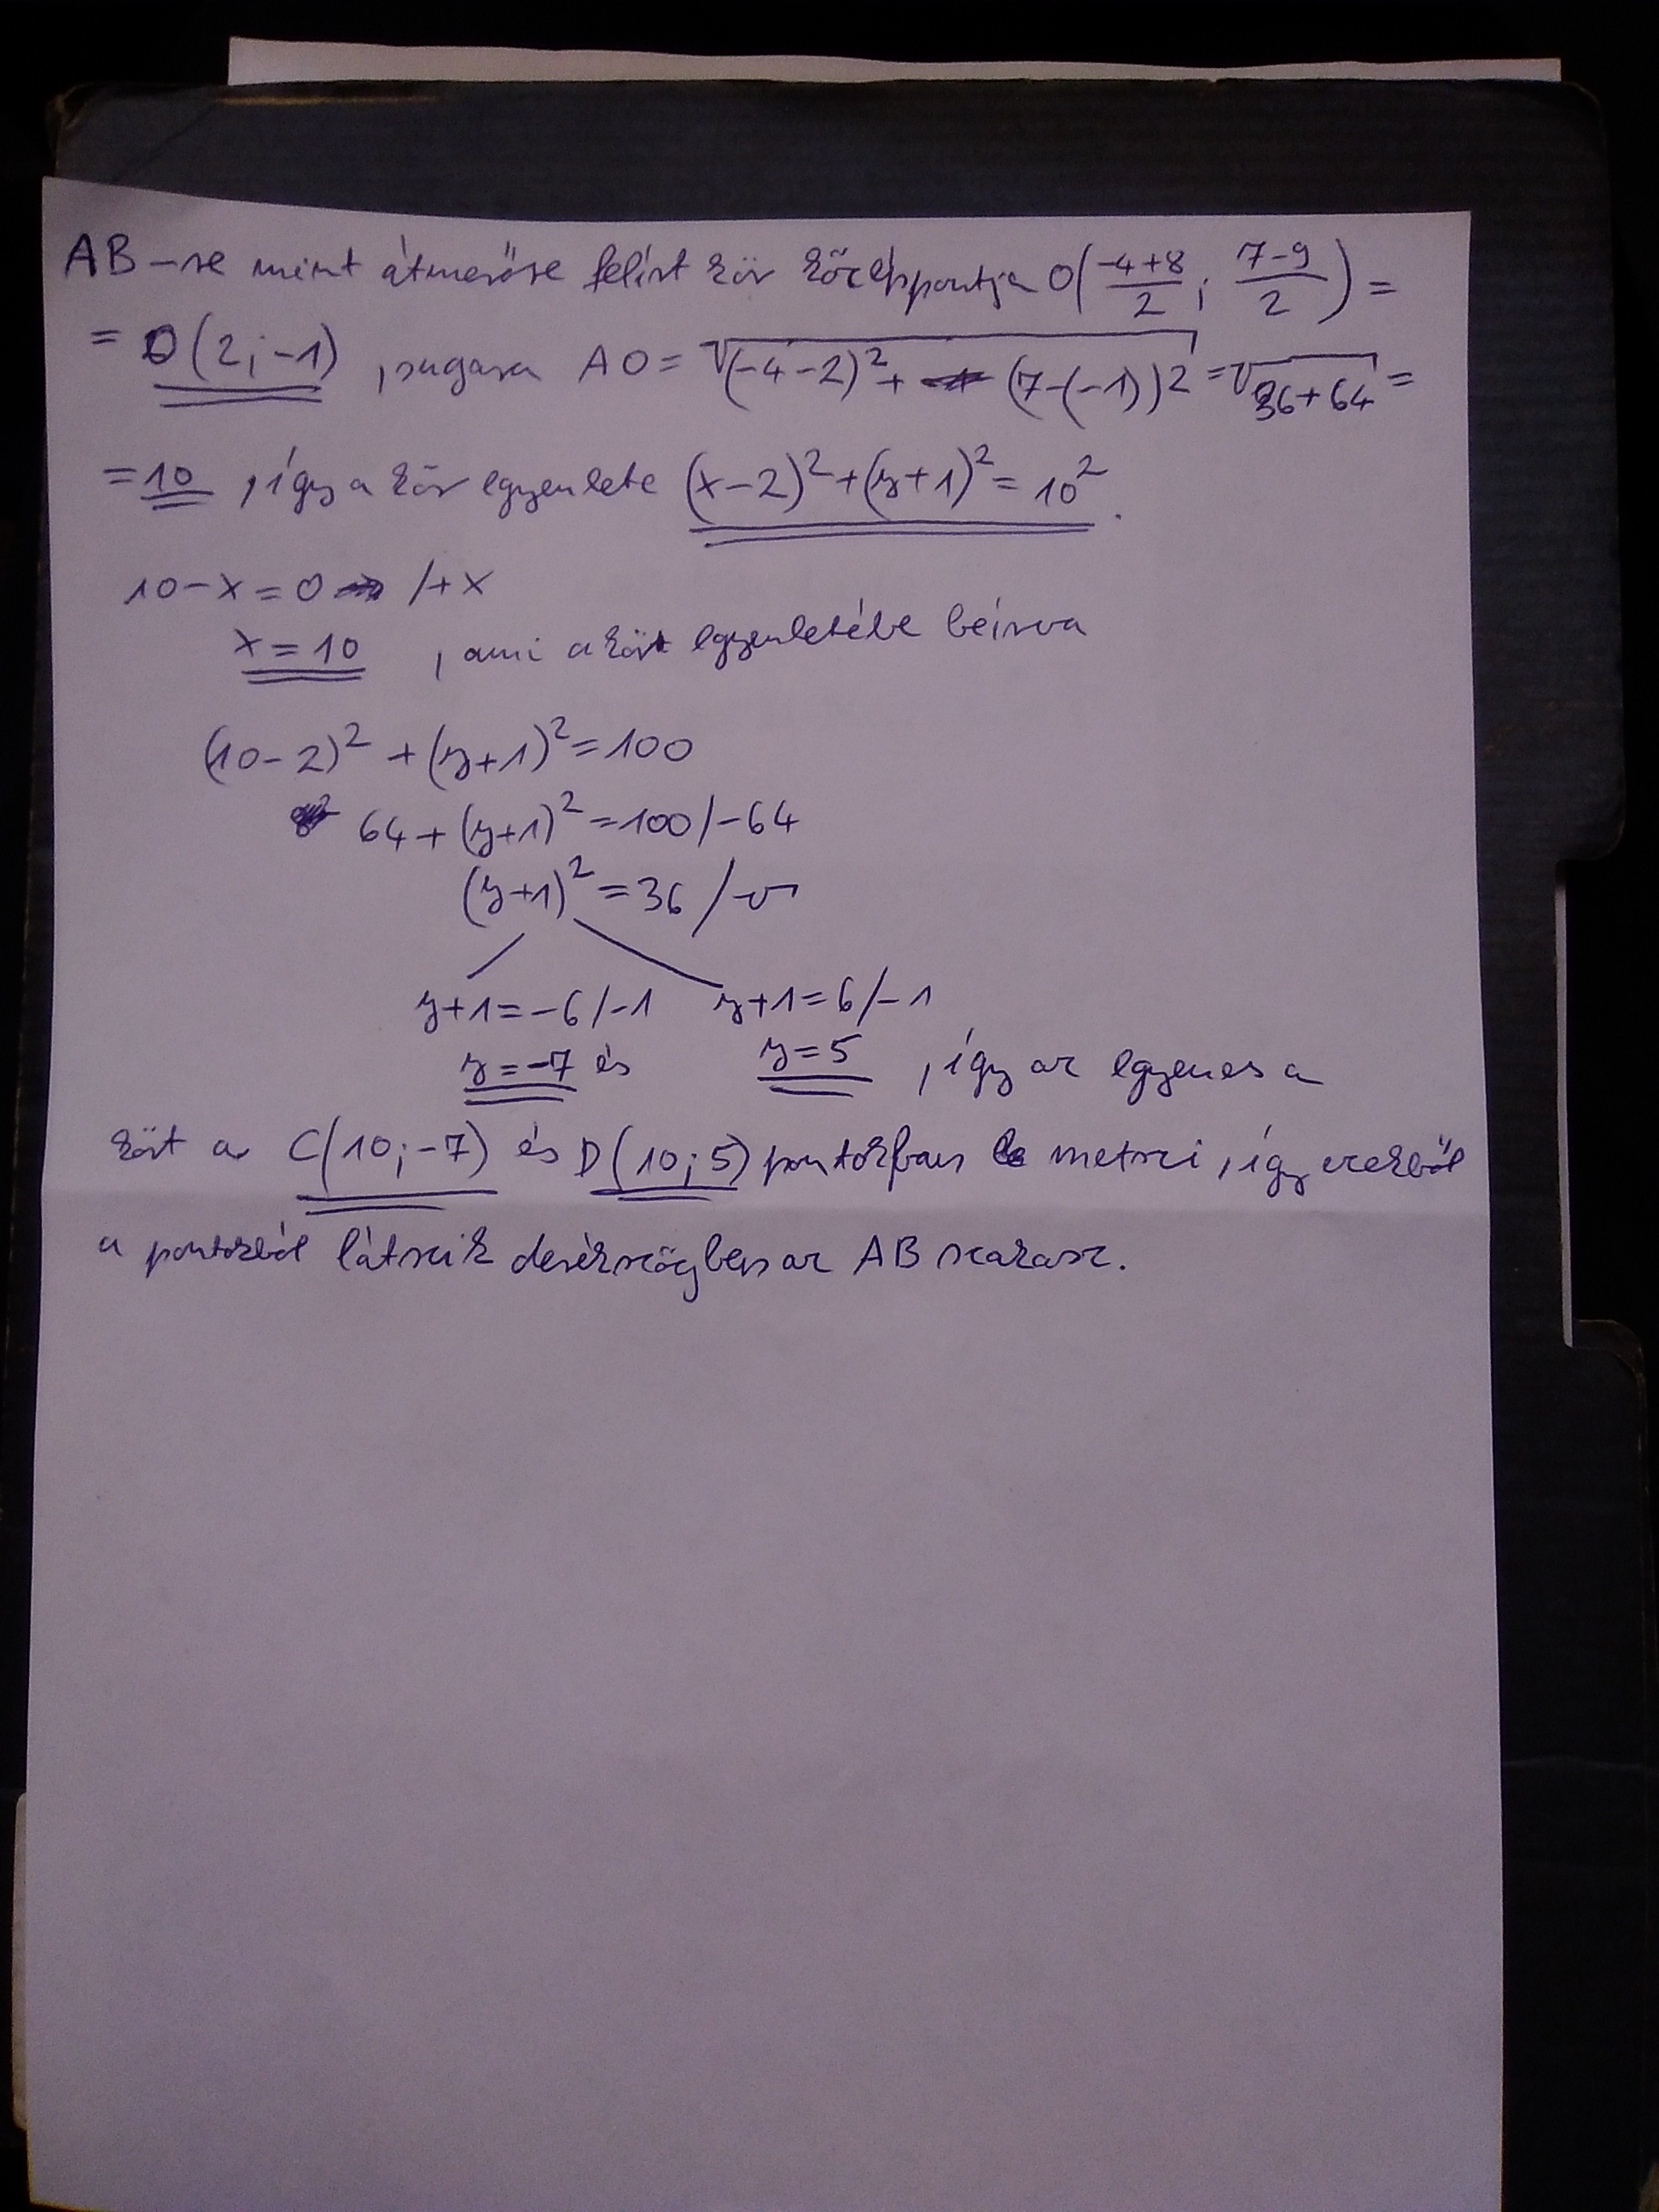 AB-re mint átmerőre felírt kör középpontja O(-4+8/2 ; 7-9/2) =
= O(2;-1) , sugara AO = √(-4-2)²+ (7-(-1))² = √36+64 =
= 10 , így a kör egyenlete (x-2)²+(y+1)² = 10² .
10-x=0 /+x
x=10 , ami a kör egyenletébe beírva
(10-2)² + (y+1)² = 100
64+(y+1)² = 100 /-64
(y+1)² = 36 /√
y+1=-6 /-1 y+1=6 /-1
y=-7 és y=5 , így az egyenes a
kört a C(10;-7) és D(10;5) pontokban metszi , így ezekből
a pontokból látszik derékszögben az AB szakasz.